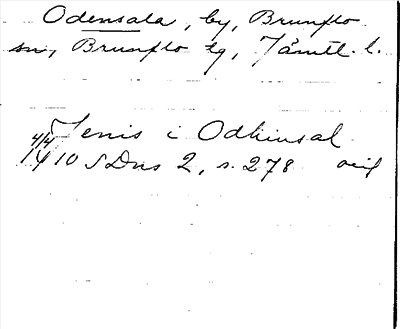 Odensala, by, Brunflo
sn, Brunflo tg, Jämtl. l.
Jenis i Odhinsal
4/4 1410 SDns 2, s. 278 orig